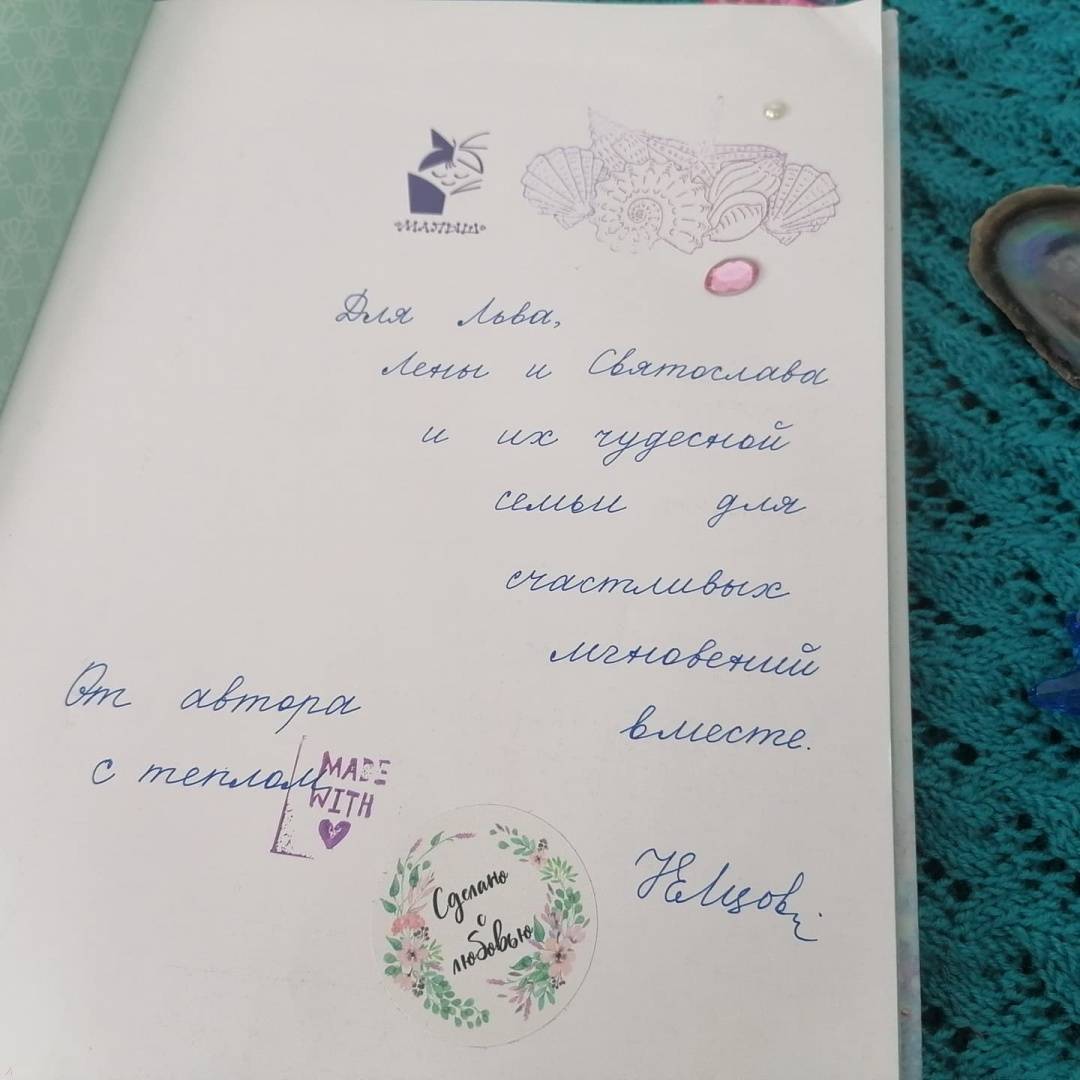 «МАЛЫШ»
Для Льва,
Лены и Святослава
и их чудесной
семьи для
счастливых
мгновений
вместе.
От автора
с теплом
MADE
WITH
Сделано
с
любовью